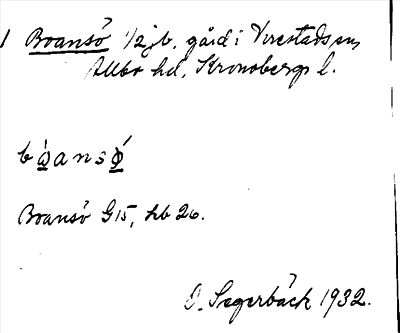 1 Boansö 1/2 jb, gård i Virestads sn,
Allbo hd, Kronobergs l.
bòansǿ
Boansö G15, hb 26.
O. Segerbäck 1932.